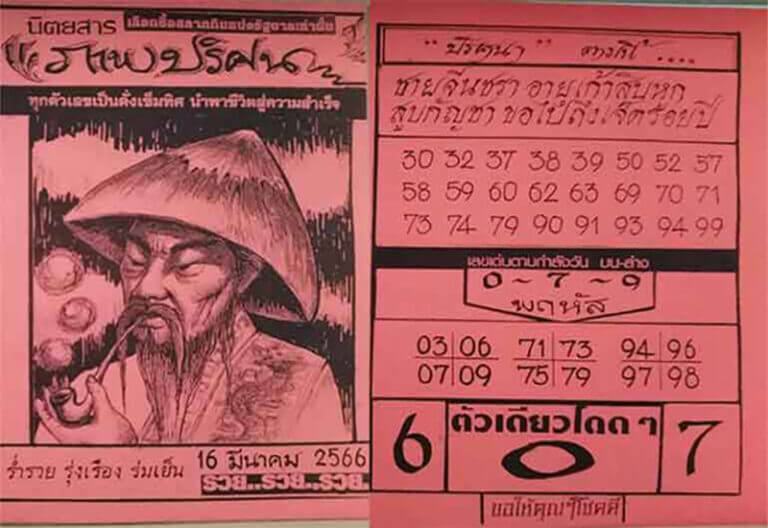 นิตยสาร
เลือกซื้อสลากกินแบ่งรัฐบาลเท่านั้น
ภาพปริศนา
ทุกตัวเลขเป็นดั่งเข็มทิศ นำพาชีวิตสู่ความสำเร็จ
ร่ำรวย รุ่งเรือง ร่มเย็น
16 มีนาคม 2566
รวย..รวย..รวย.
"ปริศนา"
ชายจีนชรา อายุเก้าสิบหก
สูบกัญชา ขอไปถึงเจ็ดร้อยปี
30 32 37 38 39 50 52 57
58 59 60 62 63 69 70 71
73 74 79 90 91 93 94 99
เลขเด่นตามกำลังวัน บน-ล่าง
0 ~ 7 ~ 9
พฤหัส
03 06 71 73 94 96
07 09 75 79 97 98
ตัวเดียวโดดๆ
6 0 7
ขอให้คุณๆโชคดี